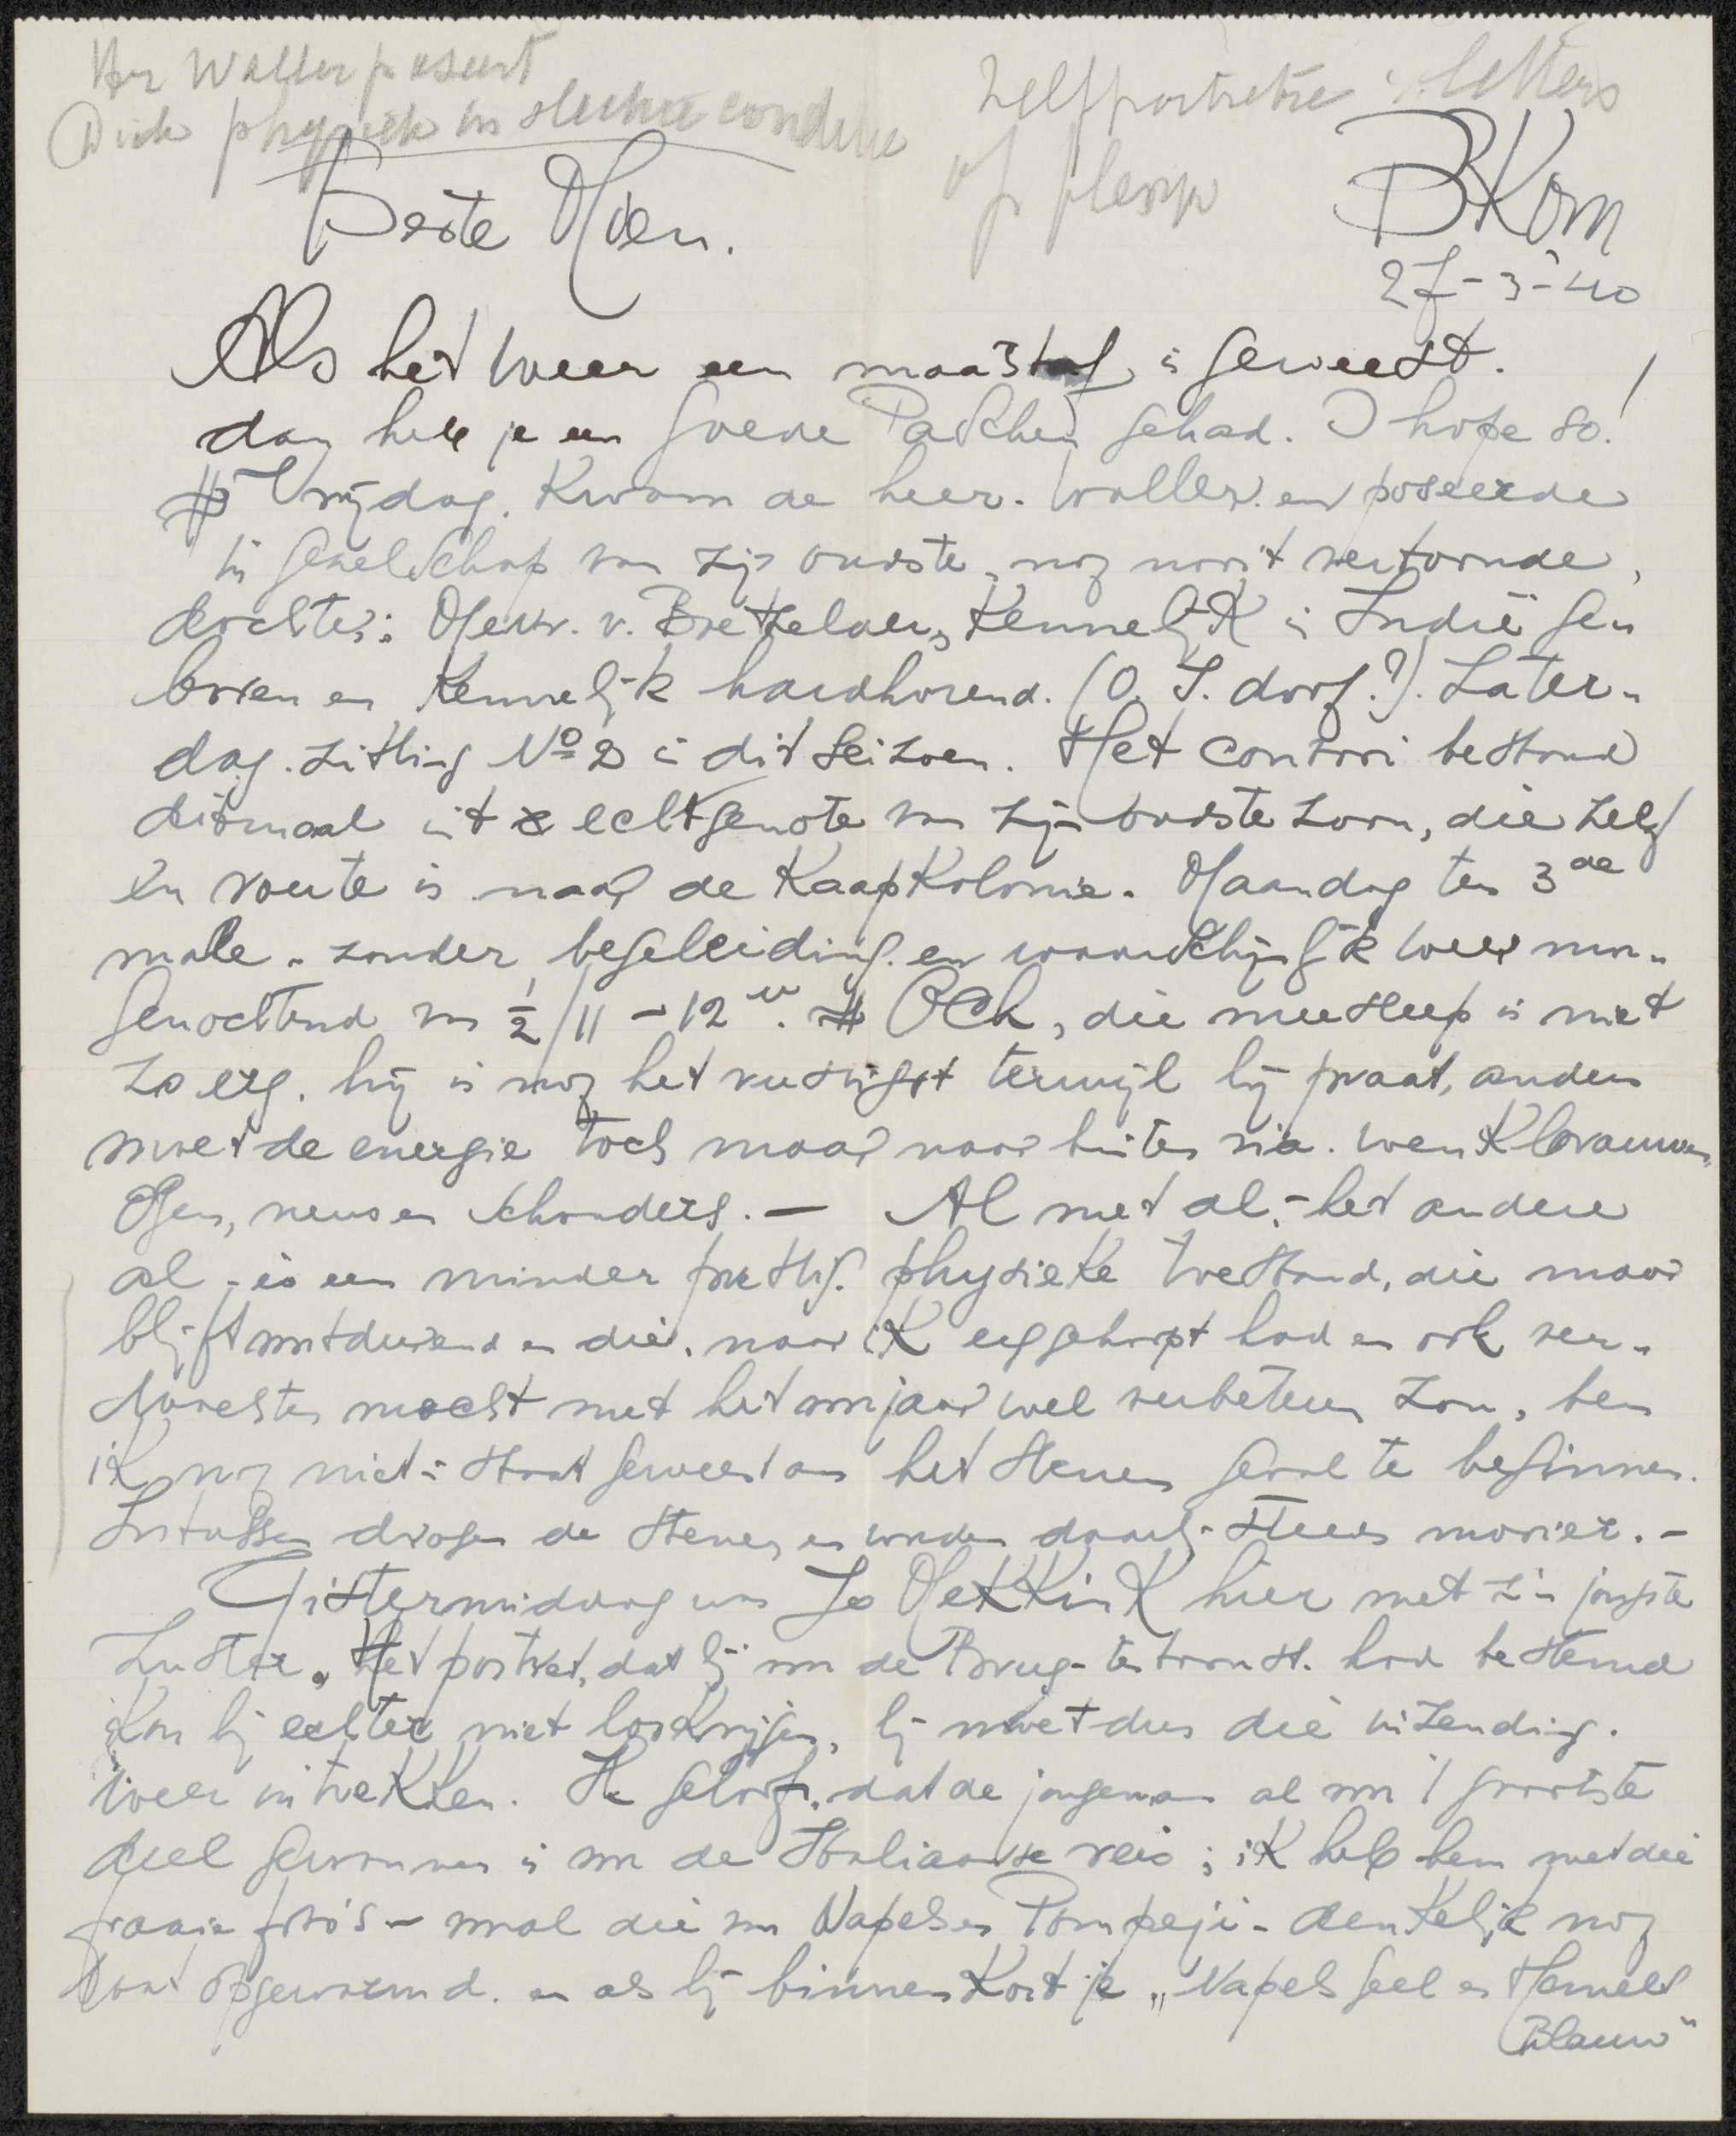 Hr Waller poseert
Dick physiek in slechte conditie
Zelfportretire : letters
op plexyr
BKom
27-3-'40
Beste Mien.
Als het weer een maatstaf is geweest.
dan heb je een goede Paschen gehad. I hope so!
Vrijdag. Kwam de heer. Waller. en poseerde
in gezelschap van zijn oudste, nog nooit vertoonde,
dochter: Mevr. v. Brethelaer, Kennelijk in Indië ge-
boren en Kennelijk hardhorend. (O. I. doof.?). Zater-
dag. zitting No 2 in dit seizoen. Het convooi bestond
ditmaal uit echtgenote van zijn oudste zoon, die zelf
en route is naar de KaapKolonie. Maandag ten 3de
male. zonder begeleiding. en waarschijnlijk weer mor-
genochtend van ½/11 - 12 u. Och, die meesleep is niet
zo erg. hij is nog het rustigst terwijl hij praat, anders
moet de energie toch maar naar buiten via. wenkbrauwen,
Ogen, neus en schouders. — Al met al, - het andere
al - is een minder prettig. physieke toestand, die maar
blijft voortdurend en die, naar iK erg gehoopt had en ook ver-
wachten mocht met het voorjaar wel verbeteren zou, ben
iK nog niet in staat geweest om het stenen geval te beginnen.
Intussen drogen de stenen en worden dagelijks steeds mooier. -
Gistermiddag was Jo MeKKinK hier met z'n jongste
zuster. Het portret, dat hij voor de Brug-tentoonst. had bestemd
Kon hij echter niet losKrijgen, hij moet dus die inzending.
weer intreKKen. Ik geloof, dat de jongeman al voor 't grootste
deel gewonnen is voor de Italiaanse reis; iK heb hem met die
fraaie foto's - vooral die van Napels en Pompeji - denkelijk nog
wat opgewarmd. en als hij binnenKort je „Napels geel en Hemels
Blauw"